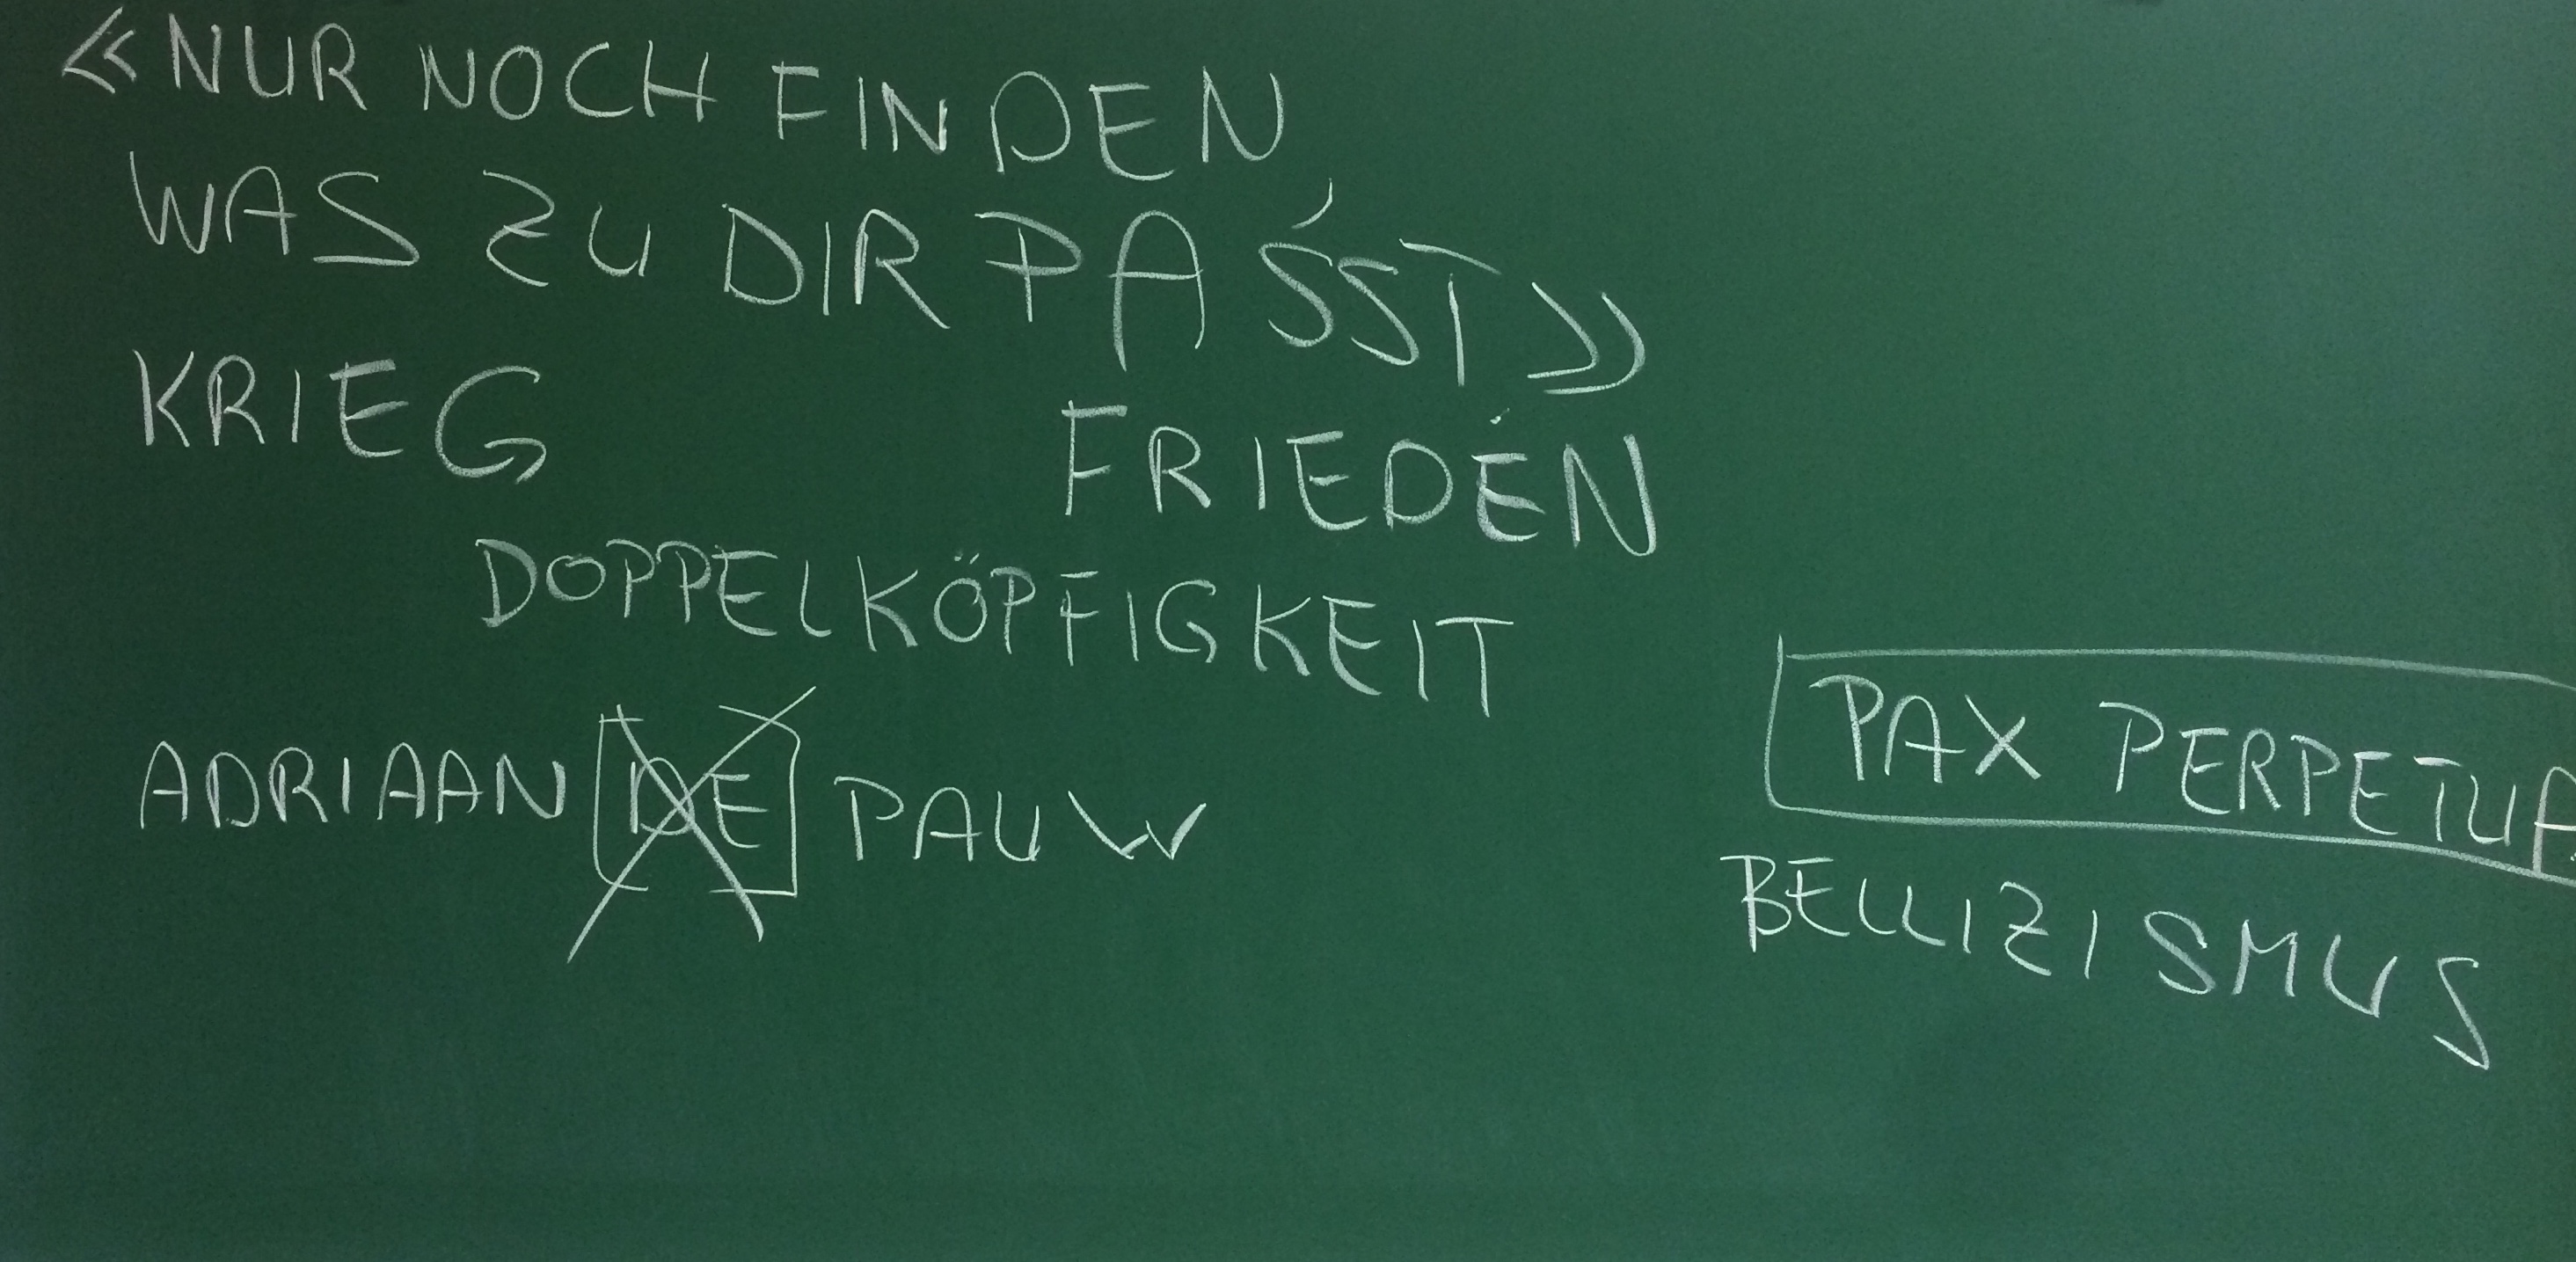 «NUR NOCH FINDEN
WAS ZU DIR PASST»
KRIEG FRIEDEN
DOPPELKÖPFIGKEIT
ADRIAAN [DE] PAUW
PAX PERPETUA
BELLIZISMUS